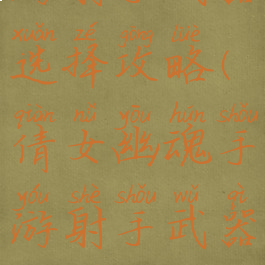 xuǎn zé gōng lüè
选择攻略(
qiàn nǚ yōu hún shǒu
倩女幽魂手
yóu shè shǒu wǔ qì
游射手武器